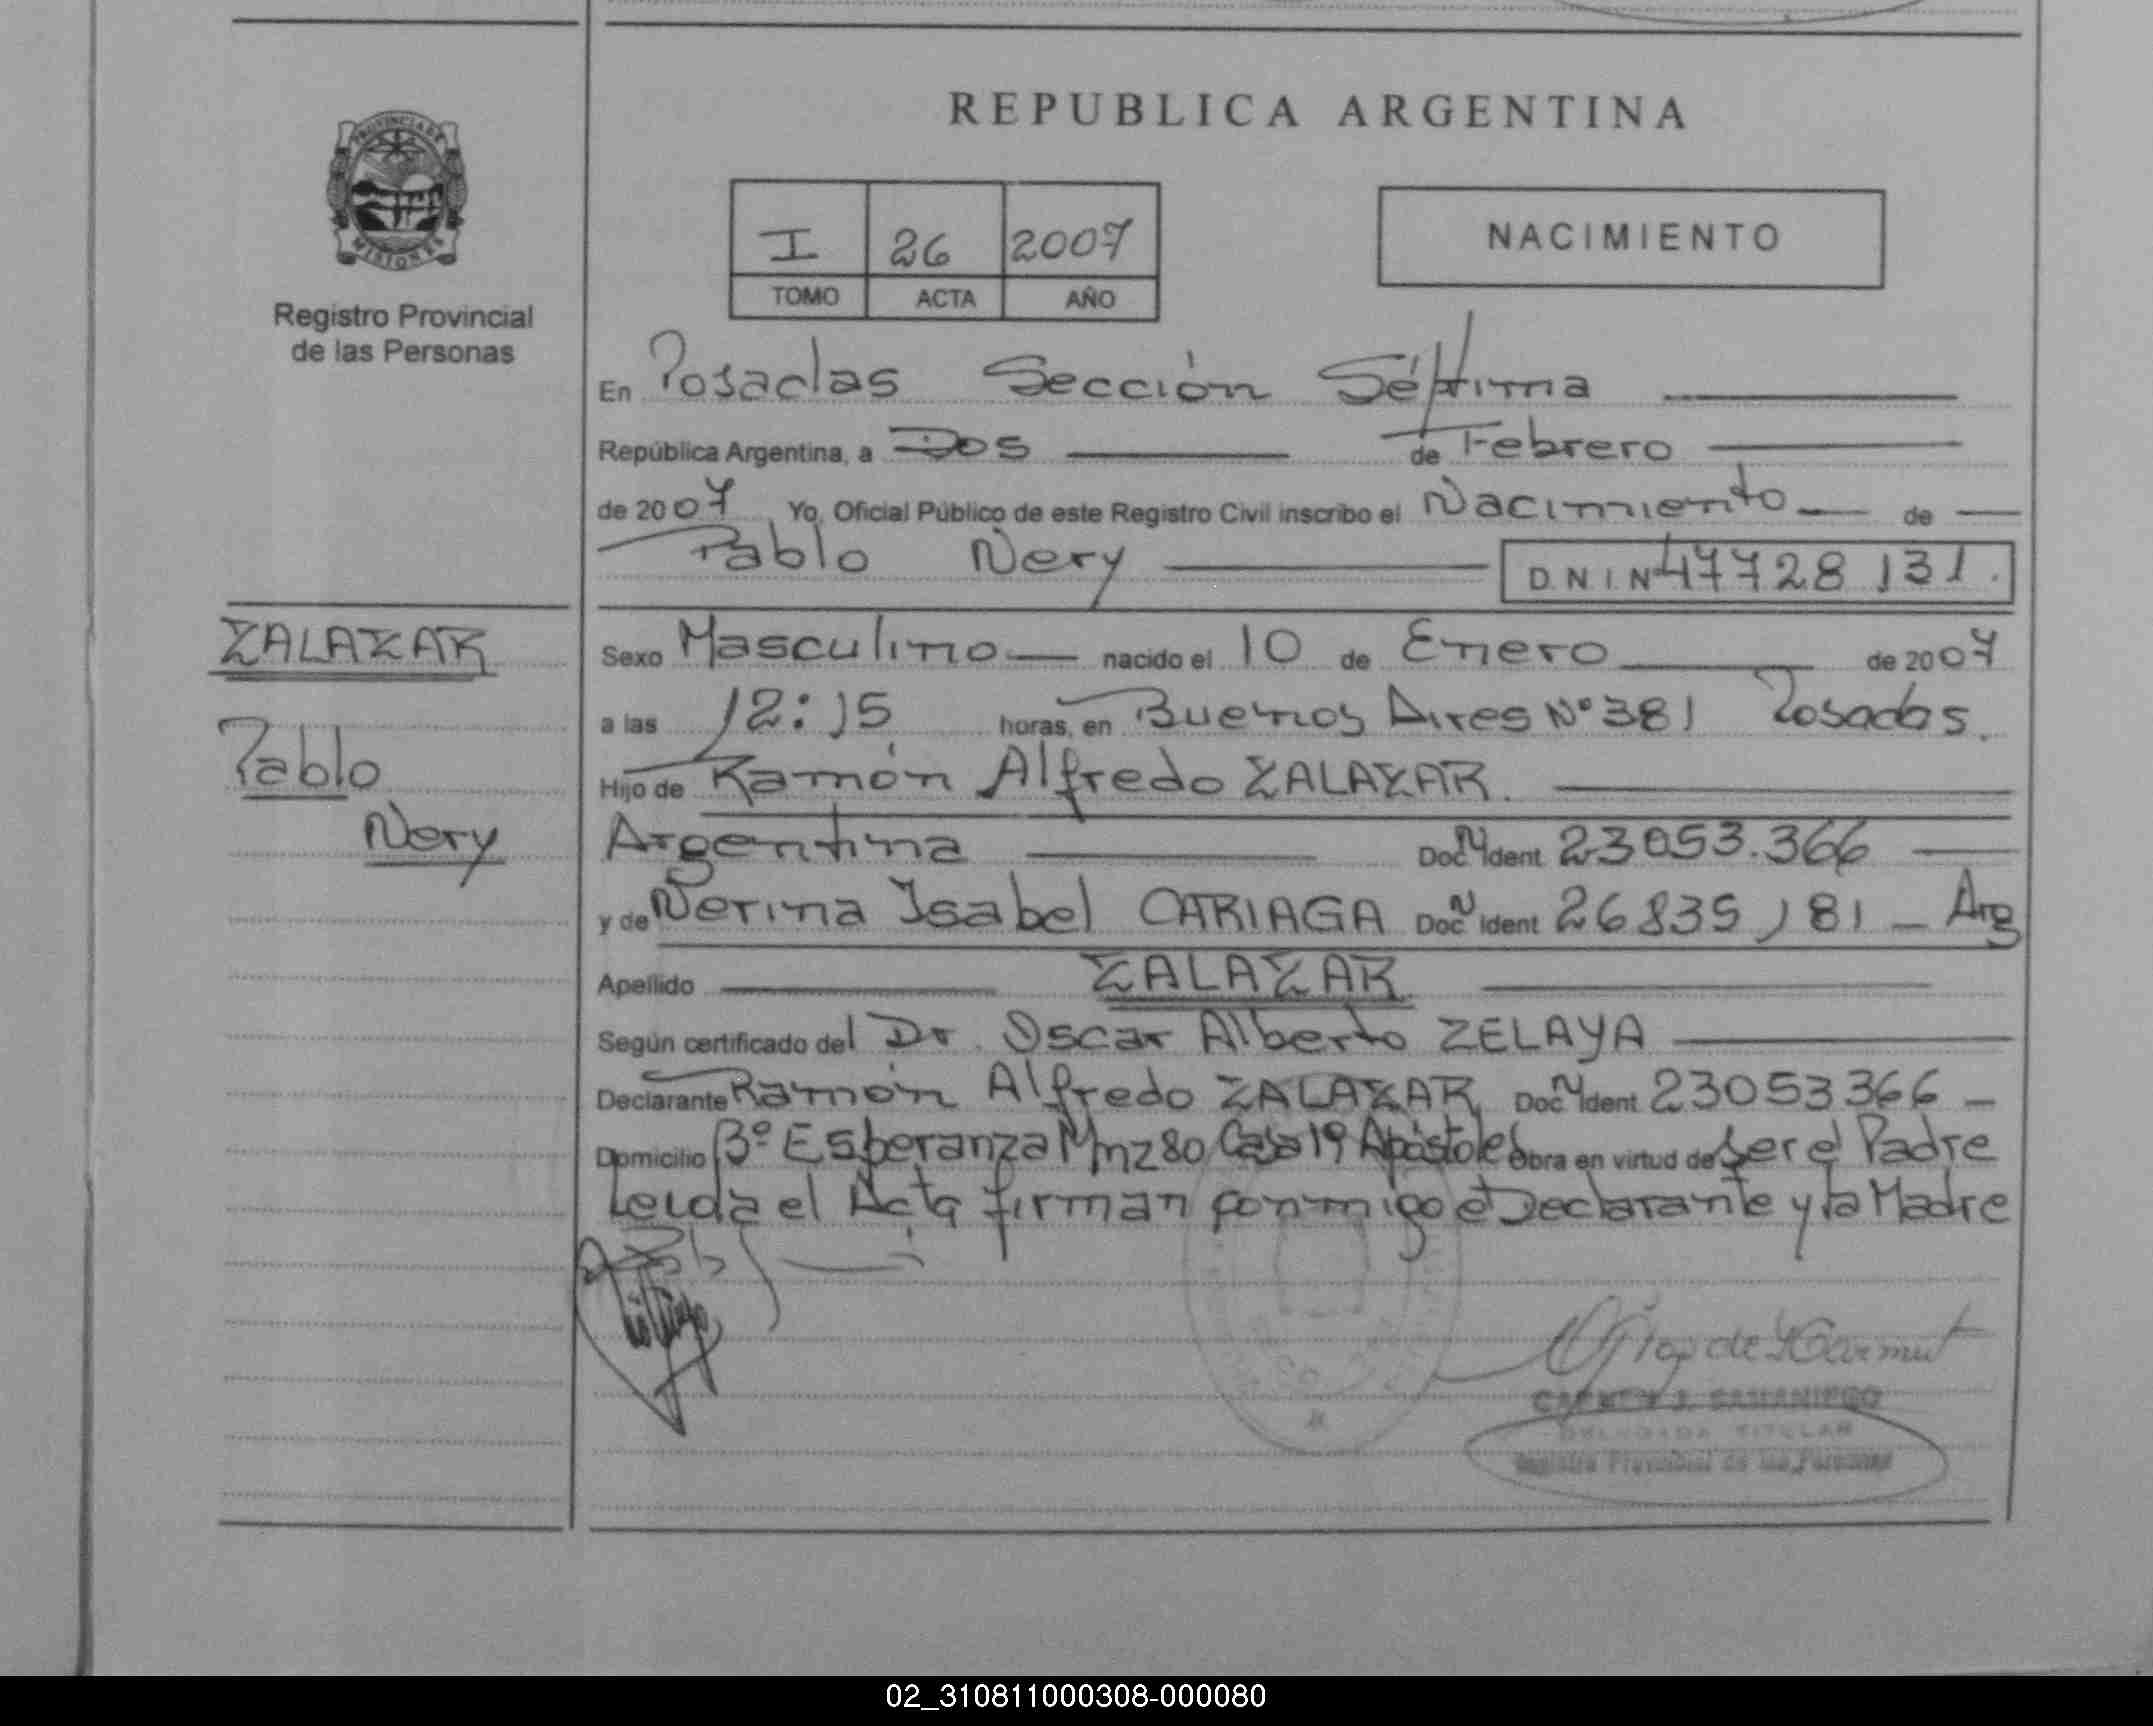 REPUBLICA ARGENTINA
PROVINCIA DE
MISIONES
Registro Provincial
de las Personas
I 26 2007
TOMO ACTA AÑO
NACIMIENTO
En Posadas Sección Séptima
República Argentina, a Dos de Febrero
de 2007 Yo, Oficial Público de este Registro Civil inscribo el Nacimiento de
Pablo Nery D.N.I.N 47728131.
ZALAZAR
Pablo
Nery
Sexo Masculino nacido el 10 de Enero de 2007
a las 12:15 horas, en Buenos Aires Nº 381 Posadas.
Hijo de Ramón Alfredo ZALAZAR.
Argentina Doc N Ident 23053.366
y de Nerina Isabel CARIAGA Doc N Ident 26835181 - Arg
Apellido ZALAZAR
Según certificado del Dr. Oscar Alberto ZELAYA
Declarante Ramón Alfredo ZALAZAR Doc N Ident 23053366 -
Domicilio Bº Esperanza Mnz 80 Casa 19 Apóstoles obra en virtud de Ser el Padre
Leida el Acta firman conmigo el Declarante y la Madre
CARMEN J. SAMANIEGO
DELEGADA TITULAR
Registro Provincial de las Personas
02_310811000308-000080